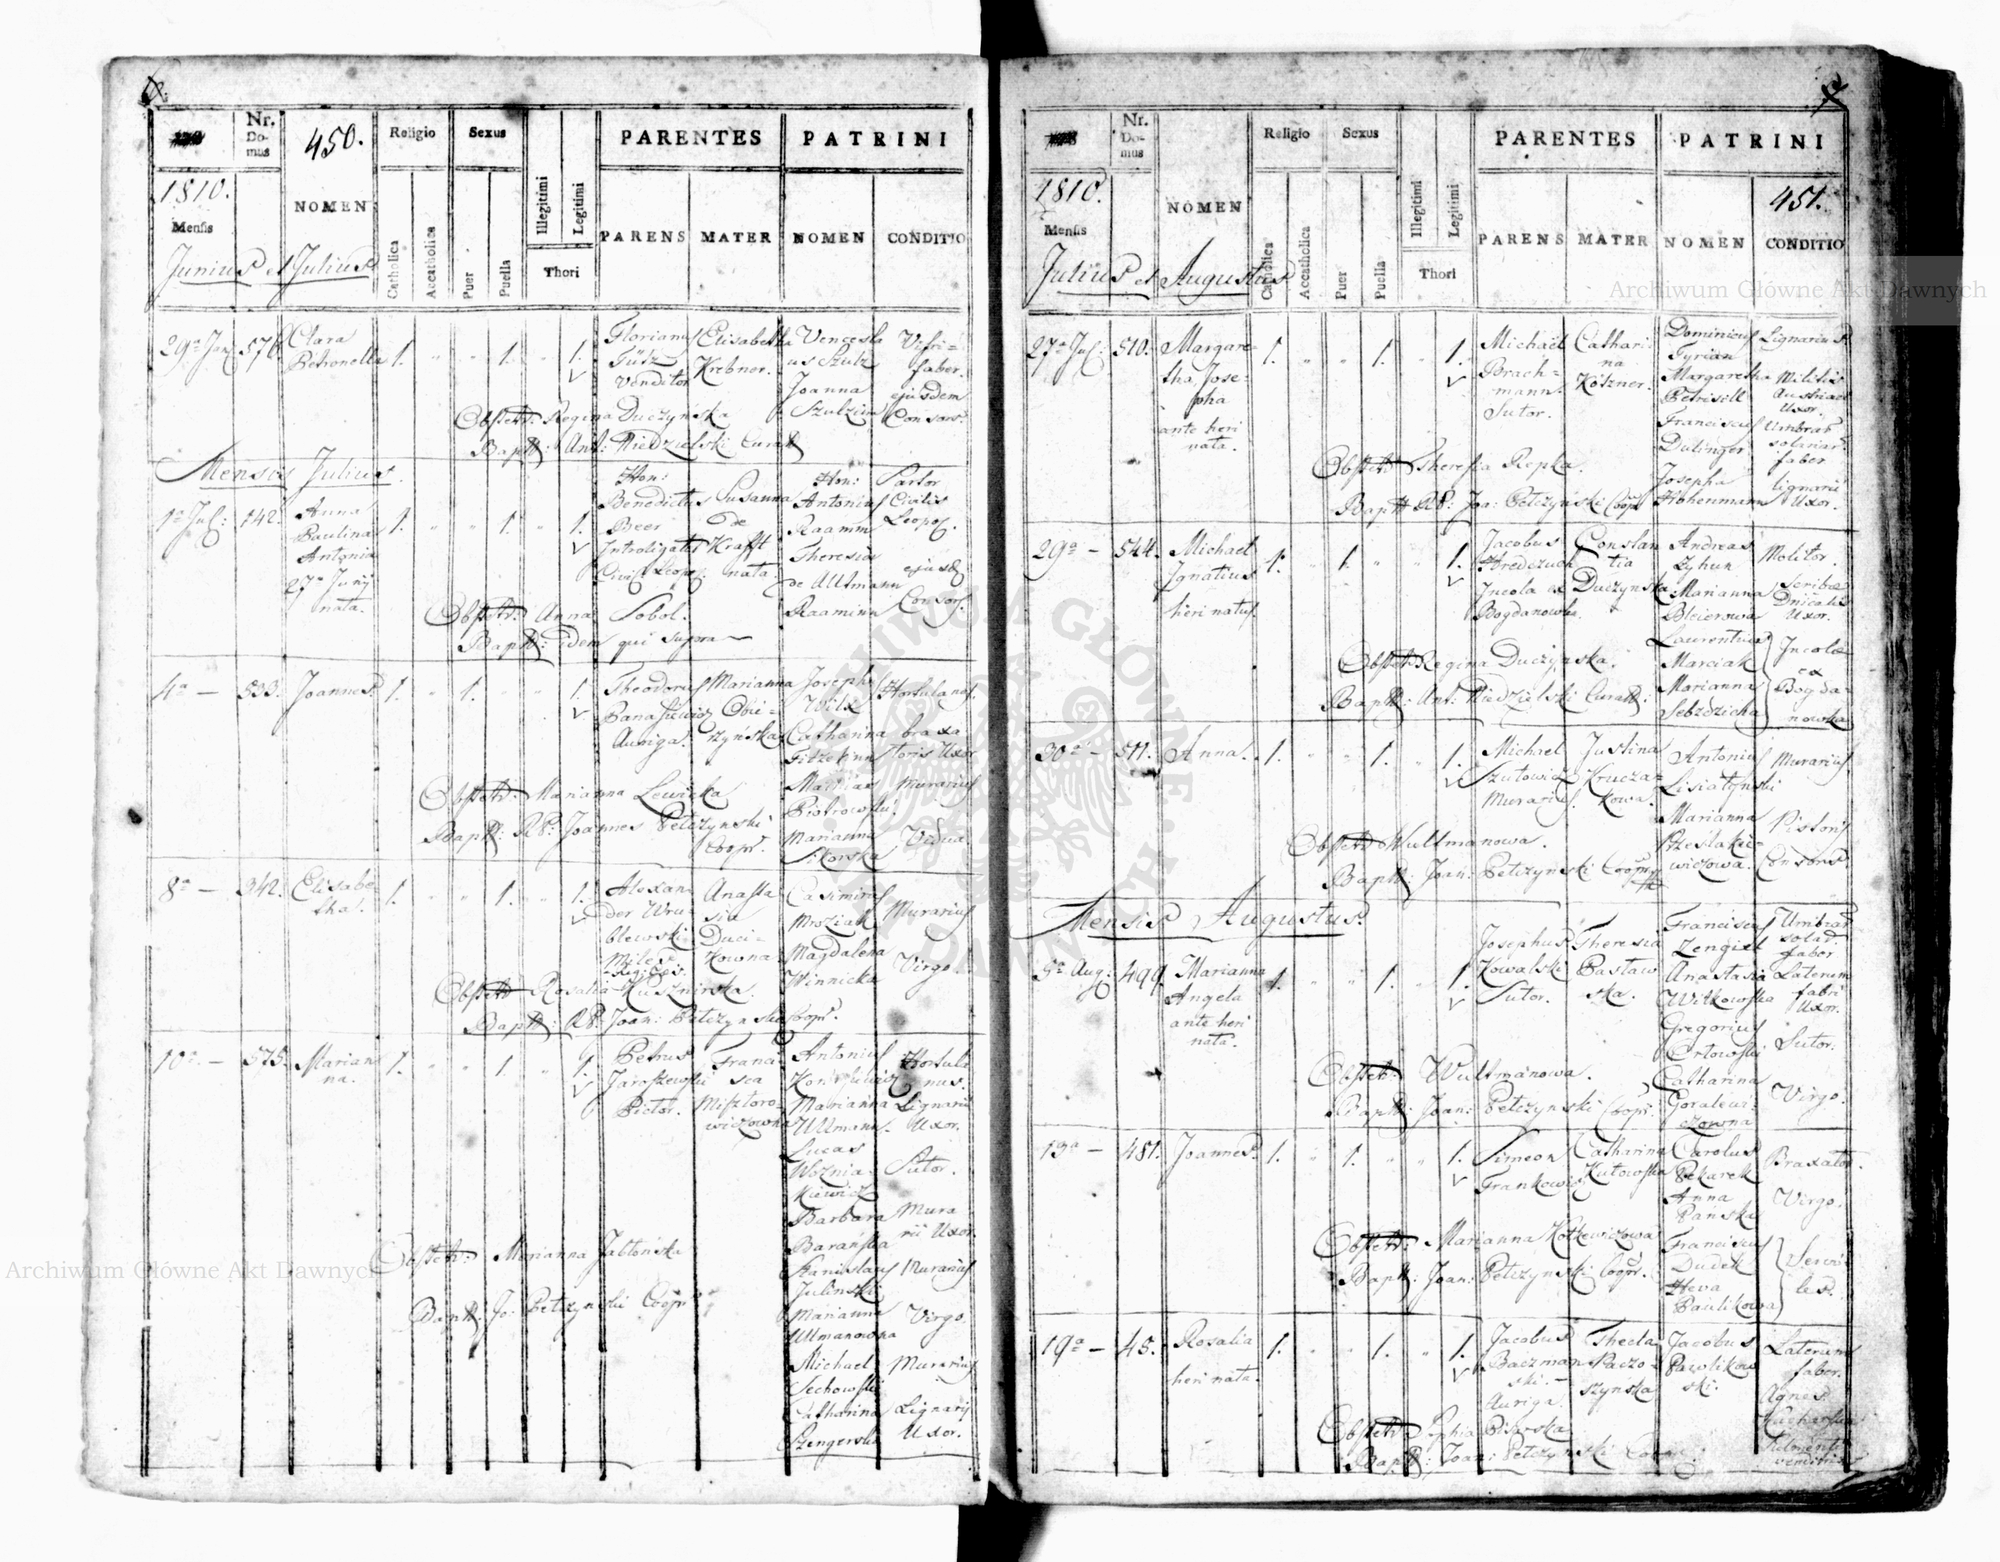 450.
Nr. Do- mus
NOMEN
Religio
Sexus
PARENTES
PATRINI
1810.
Mensis
Junius et Julius
Catholica
Accatholica
Puer
Puella
Illegitimi
Legitimi
Thori
PARENS
MATER
NOMEN
CONDITIO
29a Jun
576.
Clara
Petronella
1.
1.
1.
Florianus
Venditor
Elisabetha
Krebner.
Vencesla
us Szulz
Joanna
Szulzin
Vitri-
faber.
ejusdem
Consors.
Obstetr: Regina Duczyńska
Bapt: Ant: Niedzielski Curat
Mensis Julius.
1a Jul:
142.
Anna
Paulina
Antonia
27a Junij
nata.
1.
1.
1.
Hon:
Benedictus
Beer
Introligator
Civis Leopol:
Susanna
de
Krafft
nata
Hon:
Antonius
Raamm
Theresia
de Ultmann
Raamina
Sartor
Civilis
Leopol.
ejusd
Consors.
Obstetr: Anna Sobol.
Bapt: idem qui supra
4a —
533.
Joannes.
1.
1.
1.
Theodorus
Banasiewicz
Auriga.
Marianna
Obie-
rzyńska
Joseph
Wilk
Catharina
Mathias
Piotrowski.
Marianna
Sikorska
Hortulanus.
braxa
toris Uxor
Murarius
Vidua
Obstetr: Marianna Lewicka
Bapt: RP: Joannes Petczynski
Coopr.
8a —
342.
Elisabe-
tha.
1.
1.
1.
Alexan-
der Wru-
blewski
Miles
Anasta
sia
Duci-
kowna
Casimirus
Mroziak
Magdalena
Winnicka
Murarius
Virgo.
Obstetr Rosalia Kusznirska.
Bapt: RP: Joan: Petczynski Coopr.
10a —
575.
Marian
na.
1.
1.
1.
Petrus
Jaroszewski
Pictor.
Franci-
sca
Misztoro-
wiczowna
Antonius
Marianna
Ullmann.
Lucas
Woznia-
kiewicz
Barbara
Barańska
Stanislaus
Julinski
Marianna
Ulmanowna
Michael
Sechowski
Catharina
Szengerska
Hortula
nus.
Lignarii
Uxor.
Sutor.
Mura
rii Uxor.
Murarius
Virgo.
Murarius
Lignarij
Uxor.
Obstetr: Marianna Jabłońska
Bapt: Jo: Petczynski Coopr
Nr. Do- mus
NOMEN
Religio
Sexus
PARENTES
PATRINI
1810.
451.
Mensis
Julius et Augustus
Catholica
Accatholica
Puer
Puella
Illegitimi
Legitimi
Thori
PARENS
MATER
NOMEN
CONDITIO
27a Jul:
510.
Margare-
tha Jose-
pha
ante heri
nata.
1.
1.
1.
Michael
Brach-
mann
Sutor.
Cathari-
na
Köszner.
Dominicus
Tyrian
Margaretha
Petrisill
Franciscus
Dulinger
Josepha
Hohenmann
Lignarius
Militis
Austriaci
Uxor.
Umbrar
solariar
faber
lignarii
Uxor.
Obstetr Theresia Repka.
Bapt RP: Joa: Petczyński Coopr
29a —
544.
Michael
Ignatius
heri natus.
1.
1.
1.
Jacobus
Hredczuch
Incola ex
Bogdanowka.
Constan
tia
Duczynska
Andreas
Lyhun
Marianna
Bleierowa
Laurentius
Marciak
Marianna
Sebzdzicha
Molitor.
Scribae
Uxor.
Incolae
ex
Bogda-
nowka
Obstetr Regina Duczynska.
Bapt: Ant: Niedzielski Curat:
30a —
511.
Anna.
1.
1.
1.
Michael
Szutowicz
Murarius.
Justina
Krucza-
kowa.
Antonius
Lisiatynski
Marianna
Przeslakie-
wiczowa.
Murarius.
Pistoris
Consors.
Obstetr Wultmanowa.
Bapt: Joan: Petczynski Coopr
Mensis Augustus.
5a Aug:
499.
Marianna
Angela
ante heri
nata.
1.
1.
1.
Josephus
Kowalski
Sutor.
Theresia
Pastaw
ska.
Franciscus
Zengiel
Anastasia
Witkowska
Gregorius
Ortowski
Catharina
Goralewi-
czowna
Umbrar
solar.
faber
Laterum
fabri
Uxor.
Sutor.
Virgo.
Obstetr: Wultmanowa.
Bapt: Joan: Petczynski Coopr.
13a —
481.
Joannes.
1.
1.
1.
Simeon
Frankowicz
Catharina
Kutowska
Carolus
Pekarek
Anna
Pańska
Franciscus
Dudek
Heva
Paulikowa
Braxator.
Virgo.
Servi-
les.
Obstetr: Marianna Kotkewiczowa
Bapt: Joan: Petczynski Coopr.
19a —
45.
Rosalia
heri nata.
1.
1.
1.
Jacobus
Baczman
ski.
Auriga.
Thecla
Paczo-
szynska
Jacobus
Pawlikow
ski.
Laterum
faber.
Agnes
venditrix
Obstetr Sophia Pisarska
Bapt: Joan: Petczynski
Archiwum Główne Akt Dawnych
Archiwum Główne Akt Dawnych